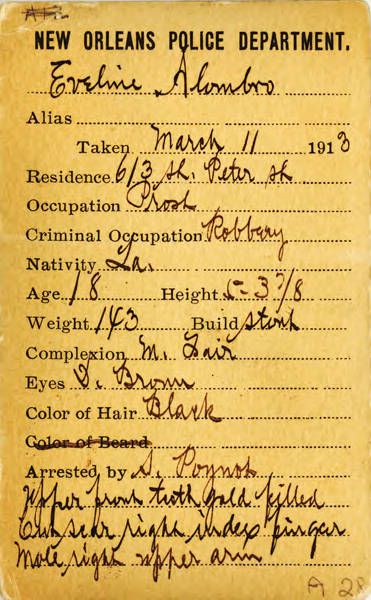 NEW ORLEANS POLICE DEPARTMENT.
Eveline Alombro
Alias
Taken March 11 1913
Residence 613 St. Peter st
Occupation Prost
Criminal Occupation Robbery
Nativity La.
Age 18 Height 5-3 7/8
Weight 143 Build stout
Complexion M. Fair
Eyes D. Brown
Color of Hair Black
Color of Beard
Arrested by S.
Upper front tooth gold filled
Cut scar right index finger
Mole right upper arm